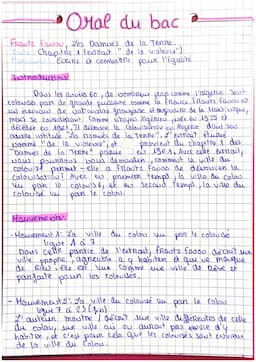 Oral du bac
Frantz Fanon, Les Damnés de la Terre,
Chapitre 1 (extrait " de la violence")
Ecrire et combattre pour l'égalité
Introduction:
Dans les années 60, de nombreux pays comme l'algérie sont
colonisés par de grande puissance comme la France. Frantz Fanon est
un écrivain de nationalité française et de la Martinique,
mais se considérant comme citoyen Algérien, née en 1925 et
décédée en 1961. Il dénonce le colonialisme en Algérie dans son
œuvre intitulé "Les Damnés de la Terre". L'extrait étudié
nommé "de la violence", et provient du chapitre 1 des
"Damnés de la Terre" parue en 1961. Avec cette extrait,
nous pourrons nous demander, comment la ville du
colonisé permet-elle à Frantz Fanon de dénoncer la
colonisation? Avec en premier temps, la ville du colon
vu par le colonisé, et en second temps, la ville du
colonisé vu par le colon.
Mouvements:
- Mouvement 1: La ville du colon vu par le colonisé
ligne 1 à 7
Dans cette partie de l'extrait, Frantz Fanon, décrit une
ville propre, agréable à y habiter et qui ne manque
de rien. Elle est vue comme une ville de rêve et
parfaite pour les colonisés.
- Mouvement 2: La ville du colonisé vu par le colon
ligne 7 à 23 (fin)
L'auteur montre / décrit une ville différentes de celle
du colon, une ville où on aurait pas envie d'y
habiter, et c'est pour cela que les colonisés sont envieux
de la ville du colon.